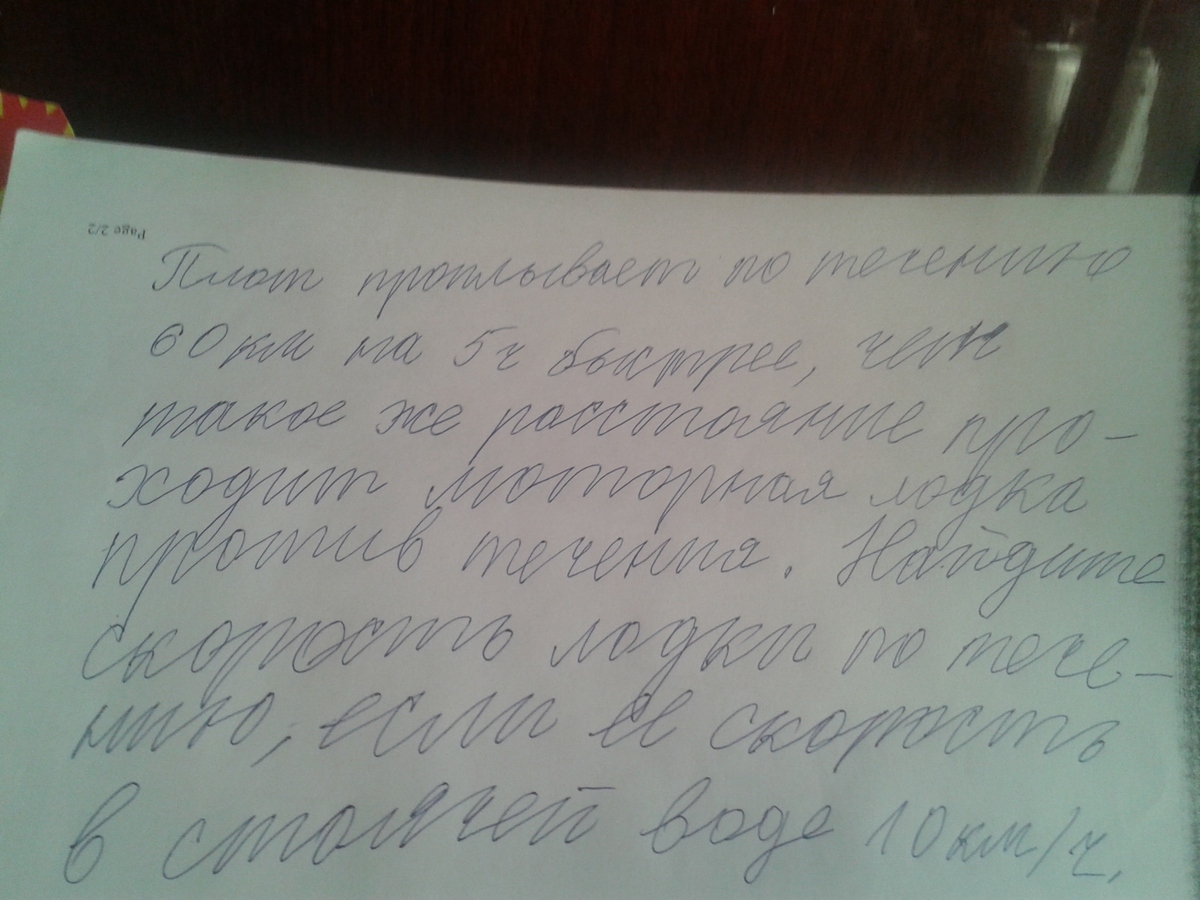 Page 2/2
Плот проплывает по течению
60 км на 5ч быстрее, чем
такое же расстояние про-
ходит моторная лодка
против течения. Найдите
скорость лодки по тече-
нию, если её скорость
в стоячей воде 10 км/ч.